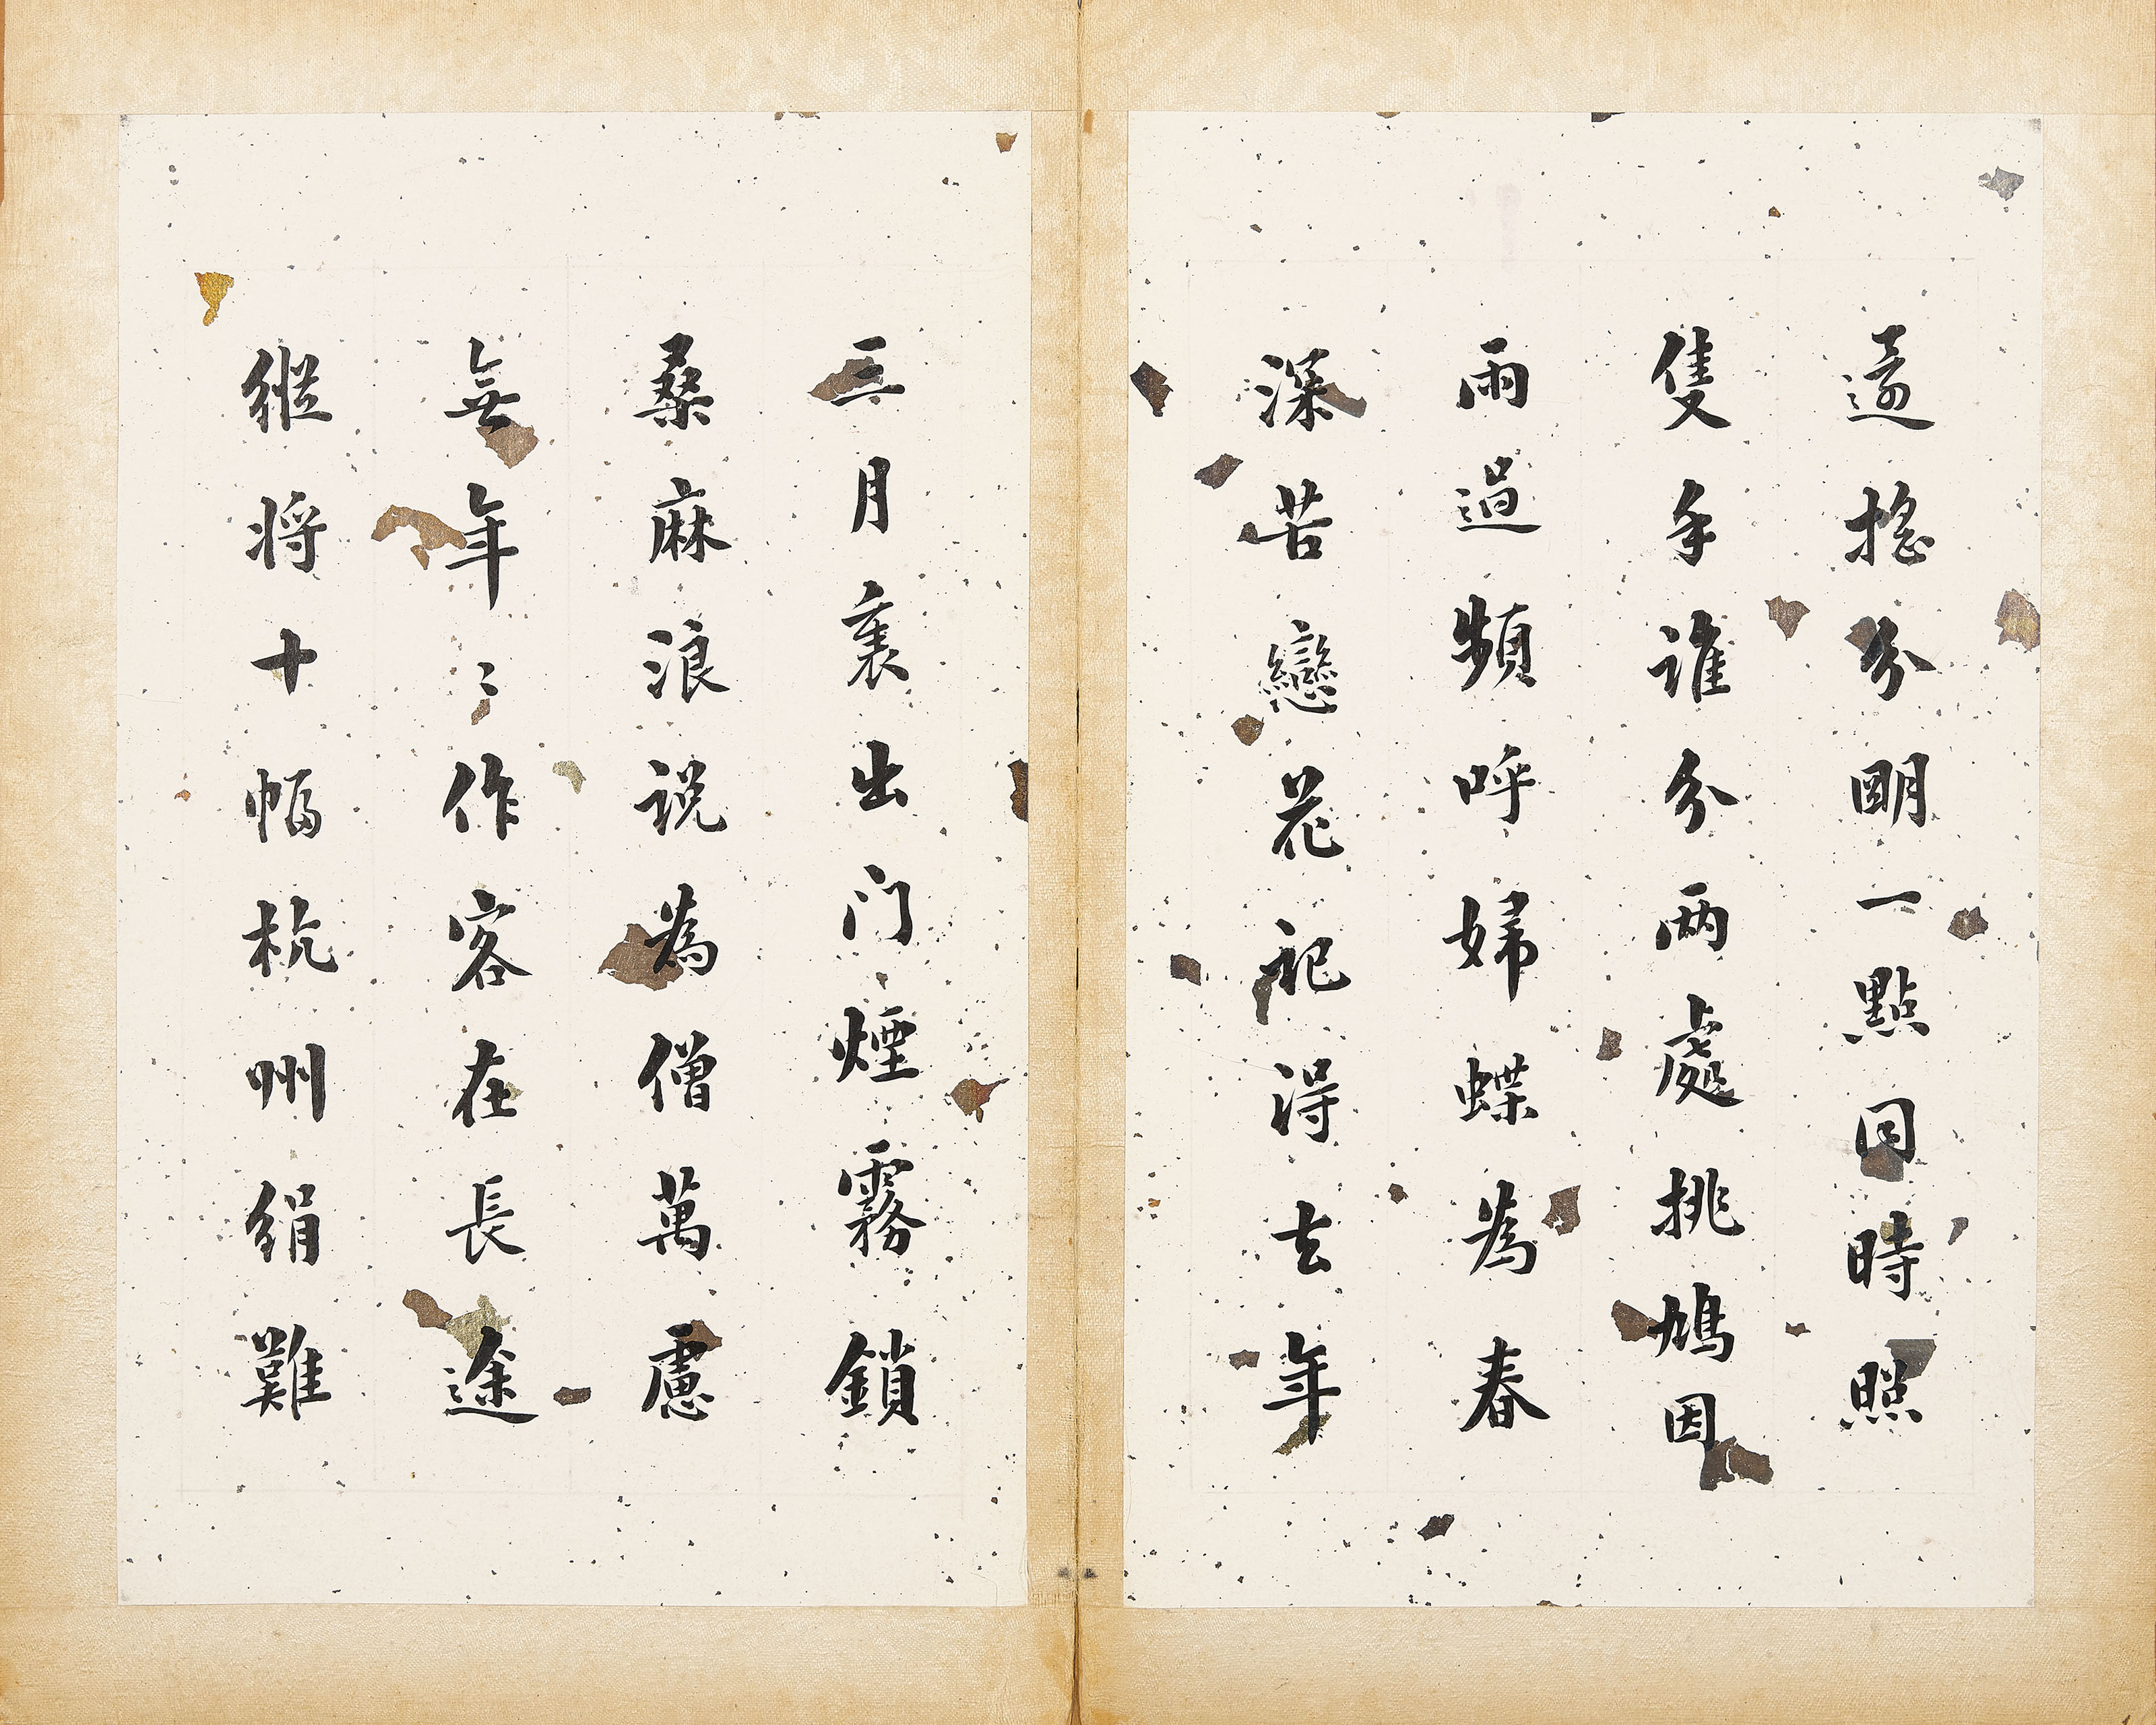 邊搖分朙一點同時照
隻手誰分两處挑鳩因
雨過頻呼婦蝶為春
深苦戀花記得去年
三月裏出门煙霧鎖
桑麻浪説為僧萬慮
無年〻作客在長途
縱将十幅杭州絹難